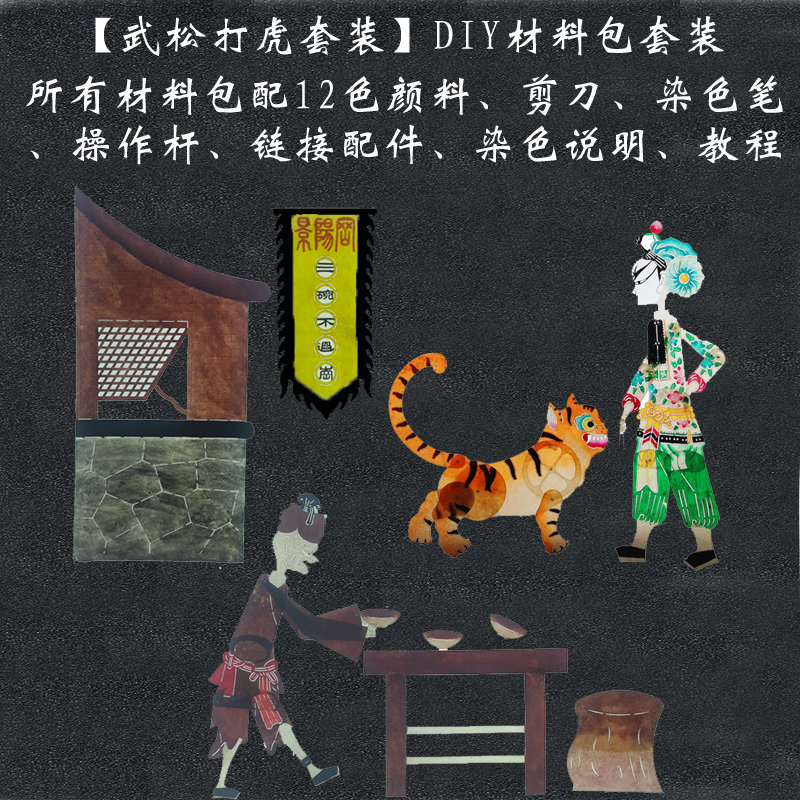 【武松打虎套装】DIY材料包套装
所有材料包配12色颜料、剪刀、染色笔
、操作杆、链接配件、染色说明、教程
景陽岡
三碗不過崗